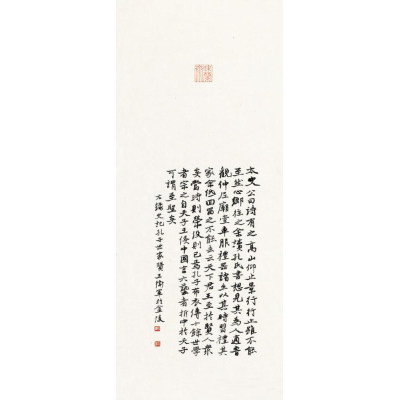 太史公曰詩有之高山仰止景行行止雖不能
至然心鄉往之余讀孔氏書想見其為人適魯
觀仲尼廟堂車服禮器諸生以其時習禮其
家余低回留之不能去云天下君王至於賢人眾
矣當時則榮沒則已焉孔子布衣傳十餘世學
者宗之自天子王侯中國言六藝者折中於夫子
可謂至聖矣
右錄史記孔子世家贊王衛軍於金陵